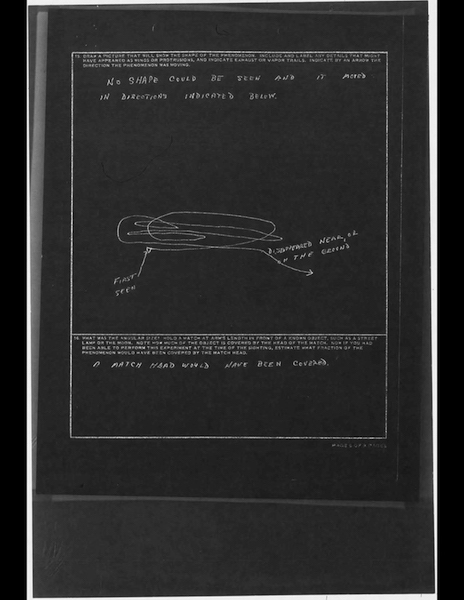 15. DRAW A PICTURE THAT WILL SHOW THE SHAPE OF THE PHENOMENON. INCLUDE AND LABEL ANY DETAILS THAT MIGHT
HAVE APPEARED AS WINGS OR PROTRUSIONS, AND INDICATE EXHAUST OR VAPOR TRAILS. INDICATE BY AN ARROW THE
DIRECTION THE PHENOMENON WAS MOVING.
NO SHAPE COULD BE SEEN AND IT MOVED
IN DIRECTIONS INDICATED BELOW.
DISAPPEARED NEAR, OR
ON THE GROUND
FIRST
SEEN
16. WHAT WAS THE ANGULAR SIZE? HOLD A MATCH AT ARM'S LENGTH IN FRONT OF A KNOWN OBJECT, SUCH AS A STREET
LAMP OR THE MOON. NOTE HOW MUCH OF THE OBJECT IS COVERED BY THE HEAD OF THE MATCH. NOW IF YOU HAD
BEEN ABLE TO PERFORM THIS EXPERIMENT AT THE TIME OF THE SIGHTING, ESTIMATE WHAT FRACTION OF THE
PHENOMENON WOULD HAVE BEEN COVERED BY THE MATCH HEAD.
A MATCH HEAD WOULD HAVE BEEN COVERED.